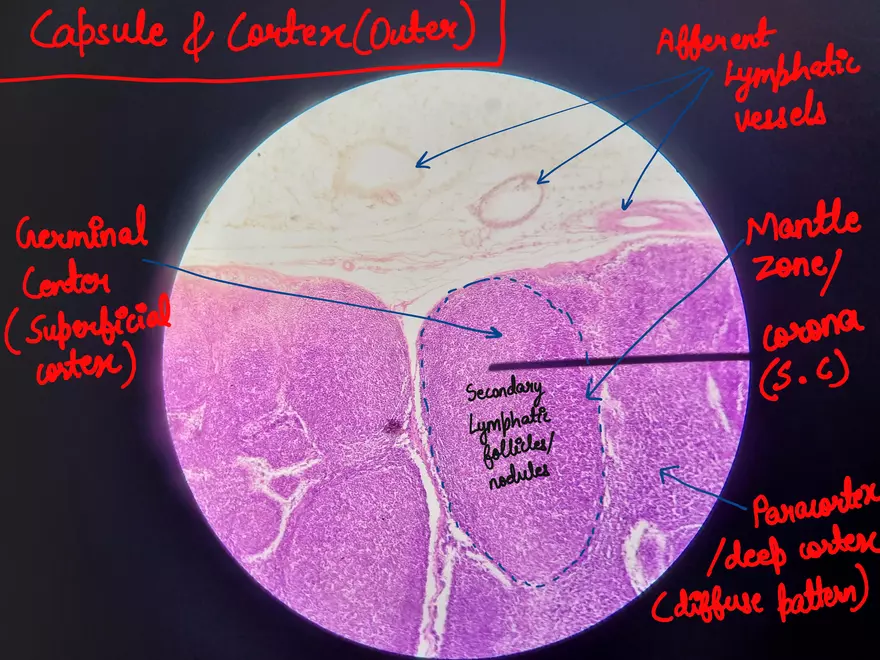 Capsule & Cortex (Outer)
Afferent
Lymphatic
vessels
Germinal
Center
(Superficial
cortex)
Mantle
Zone/
corona
(S.C)
Secondary
Lymphatic
follicles/
nodules
Paracortex
/deep cortex
(diffuse pattern)